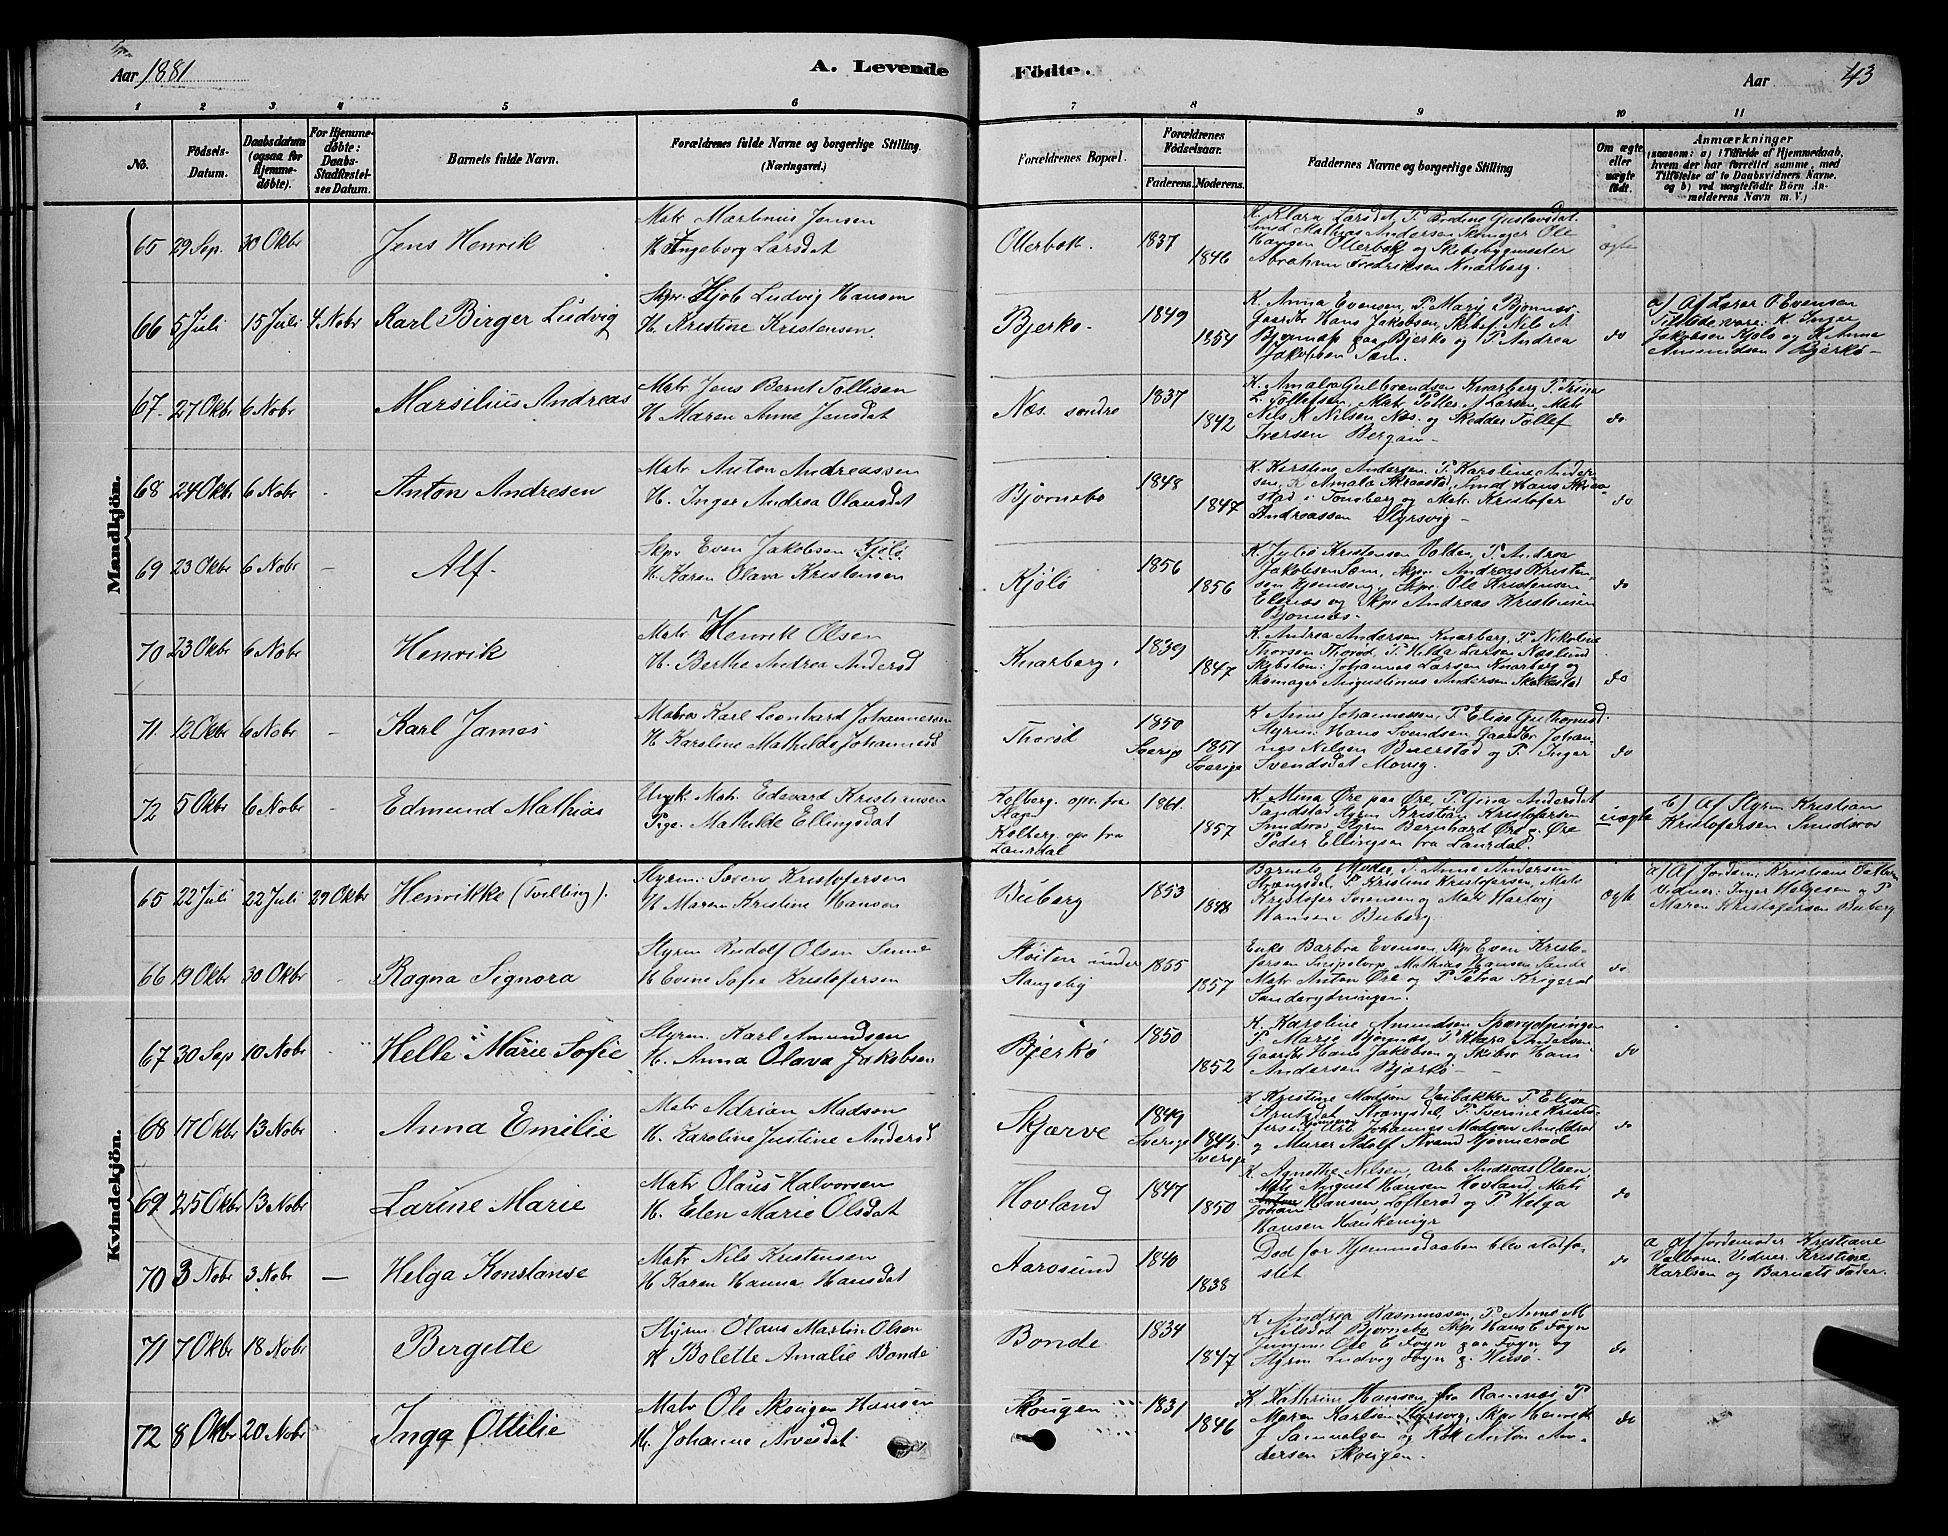 Aar 1881
A. Levende
Födte.
Aar
43
1 2 3 4 5 6 7 8 9 10 11
No.
Födsels-
Datum.
Daabsdatum
(ogsaa for
Hjemme-
döbte).
For Hjemme-
döbte:
Daabs-
Stadfæstel-
ses Datum.
Barnets fulde Navn.
Forældrenes fulde Navne og borgerlige Stilling.
(Næringsvei.)
Forældrenes Bopæl.
Forældrenes
Födselsaar.
Faderens. Moderens.
Faddernes Navne og borgerlige Stilling
Om ægte
eller
uægte
födt.
Anmærkninger
(saasom: a) i Tilfælde af Hjemmedaab,
hvem der har forrettet samme, med
Tilföielse af to Daabsvidners Navne.
og b) ved uægtefödte Börn An-
melderens Navn m. V.)
Mandkjön.
65 29 Sep. 30 Oktbr Jens Henrik
Matr Martinus Jansen
H. Ingeborg Larsdat
Ollerbok. 1837 1846
K. Klara Larsdat, P. Bredine Gustavsdat.
Smed Mathias Andersen Skomager Ole
Hansen Ollerbok og Skibsbygmester
Abraham Fredriksen Knarberg.
ægte
66 5 Juli 15 Juli 4 Nobr Karl Birger Ludvig
Skpr. Hjob Ludvig Hansen
H. Kristine Kristensen
Bjerkö 1849 1854
K. Anna Evensen, P. Marie Bjønnes
Gaardbr Hans Jakobsen, Skibsf Nils A
Bjønnæs paa Bjerko og P. Andrea
Jakobsen Sem.
do
a) Af Lærer O. Evensen
Tilstede vare: K. Inger
Jakobsen Kjolo og K. Anna
Amundsen Bjerkö
67. 27 Oktbr 6 Nobr Marsilius Andreas
Matr Jens Bernt Tollisen
H. Maren Anne Jensdat
Næs. søndre 1837 1842
K. Amalia Gulbrandsen Knarberg P. Trine
L. Tollefsen, Matr Tolles A Larsen, Matr
Nils A Nilsen Næs. og Skedder Tollef
Iversen Bergan
do
68 24 Oktbr 6 Nobr - Anton Andresen
Matr Anton Andreassen
H. Inger Andrea Olausdat
Bjørnebo 1848 1847
K. Kirstine Andersen P. Karoline Ander-
sen, K Amalia Skraastad, Smed Hans Skraa-
stad i Tonsberg og Matr. Kristofer
Andreassen Styrsvig
do
69 23 Oktbr 6 Nobr - Alf
Skpr Even Jakobsen Kjölö
H. Karen Olava Kristensen
Kjölö 1856 1856
K. Julie Kristensen Volden, P. Andrea
Jakobsen Sem, Skpr. Andreas Kristen-
sen Hjemseng, Skpr. Ole Kristensen
Elgnes og Skpr Andreas Kristensen
Bjonnes.
do
70 23 Oktbr 6 Nobr Henrik
Matr Henrik Olsen
H. Berthe Andrea Andersd
Knarberg 1839 1847
K. Andrea Andersen Knarberg, P. Nikoline
Thorsen Thorød, P. Hilda Larsen Næslund
Skibstøm: Johannes Larsen Knarberg og
Skomager Augustinus Andersen Skallestad
do
71. 12 Oktbr 6 Nobr - Karl James
Matros Karl Leonhard Johannesen
H Karoline Mathilde Johannesd
Thorød 1850 Sverige 1851 Sverige
K Anne Johannessen, P. Elise Guthormsd.
Styrm: Hans Svendsen Gaardbr. Johan-
nes Nilsen Buerstad og P. Inger
Svendsdat Movig.
do
72 5 Oktbr 6 Nobr - Edmund Mathias
Ungk. Mat. Edevard Kristiansen
Pige. Mathilde Ellingsdat
Kolberg. opr. fra
Slagen
Kolberg. opr fra
Laurdal
1861. 1857
K. Mina Øre paa Øre, P. Gina Andersdat
Sandstad Styrm Kristian Kristofersen
Smidsrød Styrm Bernhard Øre og Øre
Peder Ellingsen fra Laurdal.
uægte
b) Af Styrm Kristian
Kristofersen Smidsrød
Kvindekjön.
65 22 Juli 22 Juli 29 Oktbr Henrikke (Tvilling).
Styrm. Søren Kristofersen
H Maren Kristine Hansen
Buberg 1853 1848
Barnets Moder P. Anne Andersen
Strængsdal, P Kristine Kristofersen, Matr
Kristofer Sørensen og Matr Hartvig
Hansen Buberg.
ægte
a) Af Jordm: Kristiane Valbom
Vidner: Inger Helgesen og P
Maren Kristofersen Buberg
66 19 Oktbr 30 Oktbr - Ragna Signora
Styrm Rudolf Olsen Sunne
H Evine Sofie Kristofersen
Støiten under
Stangeby
1855 1857
Enke Barbra Evensen, Skpr Even Kristo-
fersen Snipetorp Mathias Hansen Sande
Matr Anton Øre og P Petra Krigerød
Sanderydningen.
do
67 30 Sep 10 Nobr Helle Marie Sofie
Styrm. Karl Amundsen
H. Anna Olava Jakobsen
Bjerkö 1850 1852
K. Karoline Amundsen Sparrydningen
P. Marie Bjønnæs, P. Klara Andersen
Gaardbr Hans Jakobsen og Skibsr Hans
Andersen Bjerkö
do
68 17 Oktbr 13 Nobr Anna Emilie
Matr Adrian Madsen
H. Karoline Justine Andersd
Skjærve 1849 Sverige 1846 Sverige
K Kristine Madsen Veibakken P. Elise
Arntsdat Strængsdal, P. Sverine Kristo-
fersen, Arb. Johannes Madsen Arildsrød
og Murer Adolf Strand Hjønnerød
do
69 25 Oktbr 13 Nobr Larine Marie
Matr Olaus Halvorsen
H. Elen Marie Olsdat
Hovland 1847 1850
K Agnethe Nilsen, Arb Andreas Olsen
Matr August Hansen Hovland Matr
Johan Hansen Lofterød og P. Helga
Hansen Haukemyr
do
70 3 Nobr 3 Nobr - Helga Konstanse
Matr Nils Kristensen
H Karen Hanna Hansdat
Aarøsund 1840 1838
Død før Hjemmedaaben blev stadfæ-
stet
do
a Af Jordemoder Kristiane
Valbom. Vidner. Kristine
Karlsen og Barnets Fader.
71 7 Oktbr 18 Nobr Bergette
Styrm Olaus Martin Olsen
H Bolette Amalie Bonde
Bonde 1834 1847
K Andrea Rasmussen, P. Anne M
Nilsdat Bjørnebo, Skpr Hans E Fogn
Jungm: Ole E Fogn paa Fogn og
Styrm Ludvig Fogn p. Husø
do
72 8 Oktbr 20 Nobr Inga Ottilie
Matr Ole Skougen Hansen
H. Johanne Arvesdat
Skougen 1831 1846
K Kathrine Hansen fra Ramnæs P
Maren Karlsen Styrsvig, Skpr Henrik
J Samuelsen og Kok Anton An-
dersen Skougen.
do